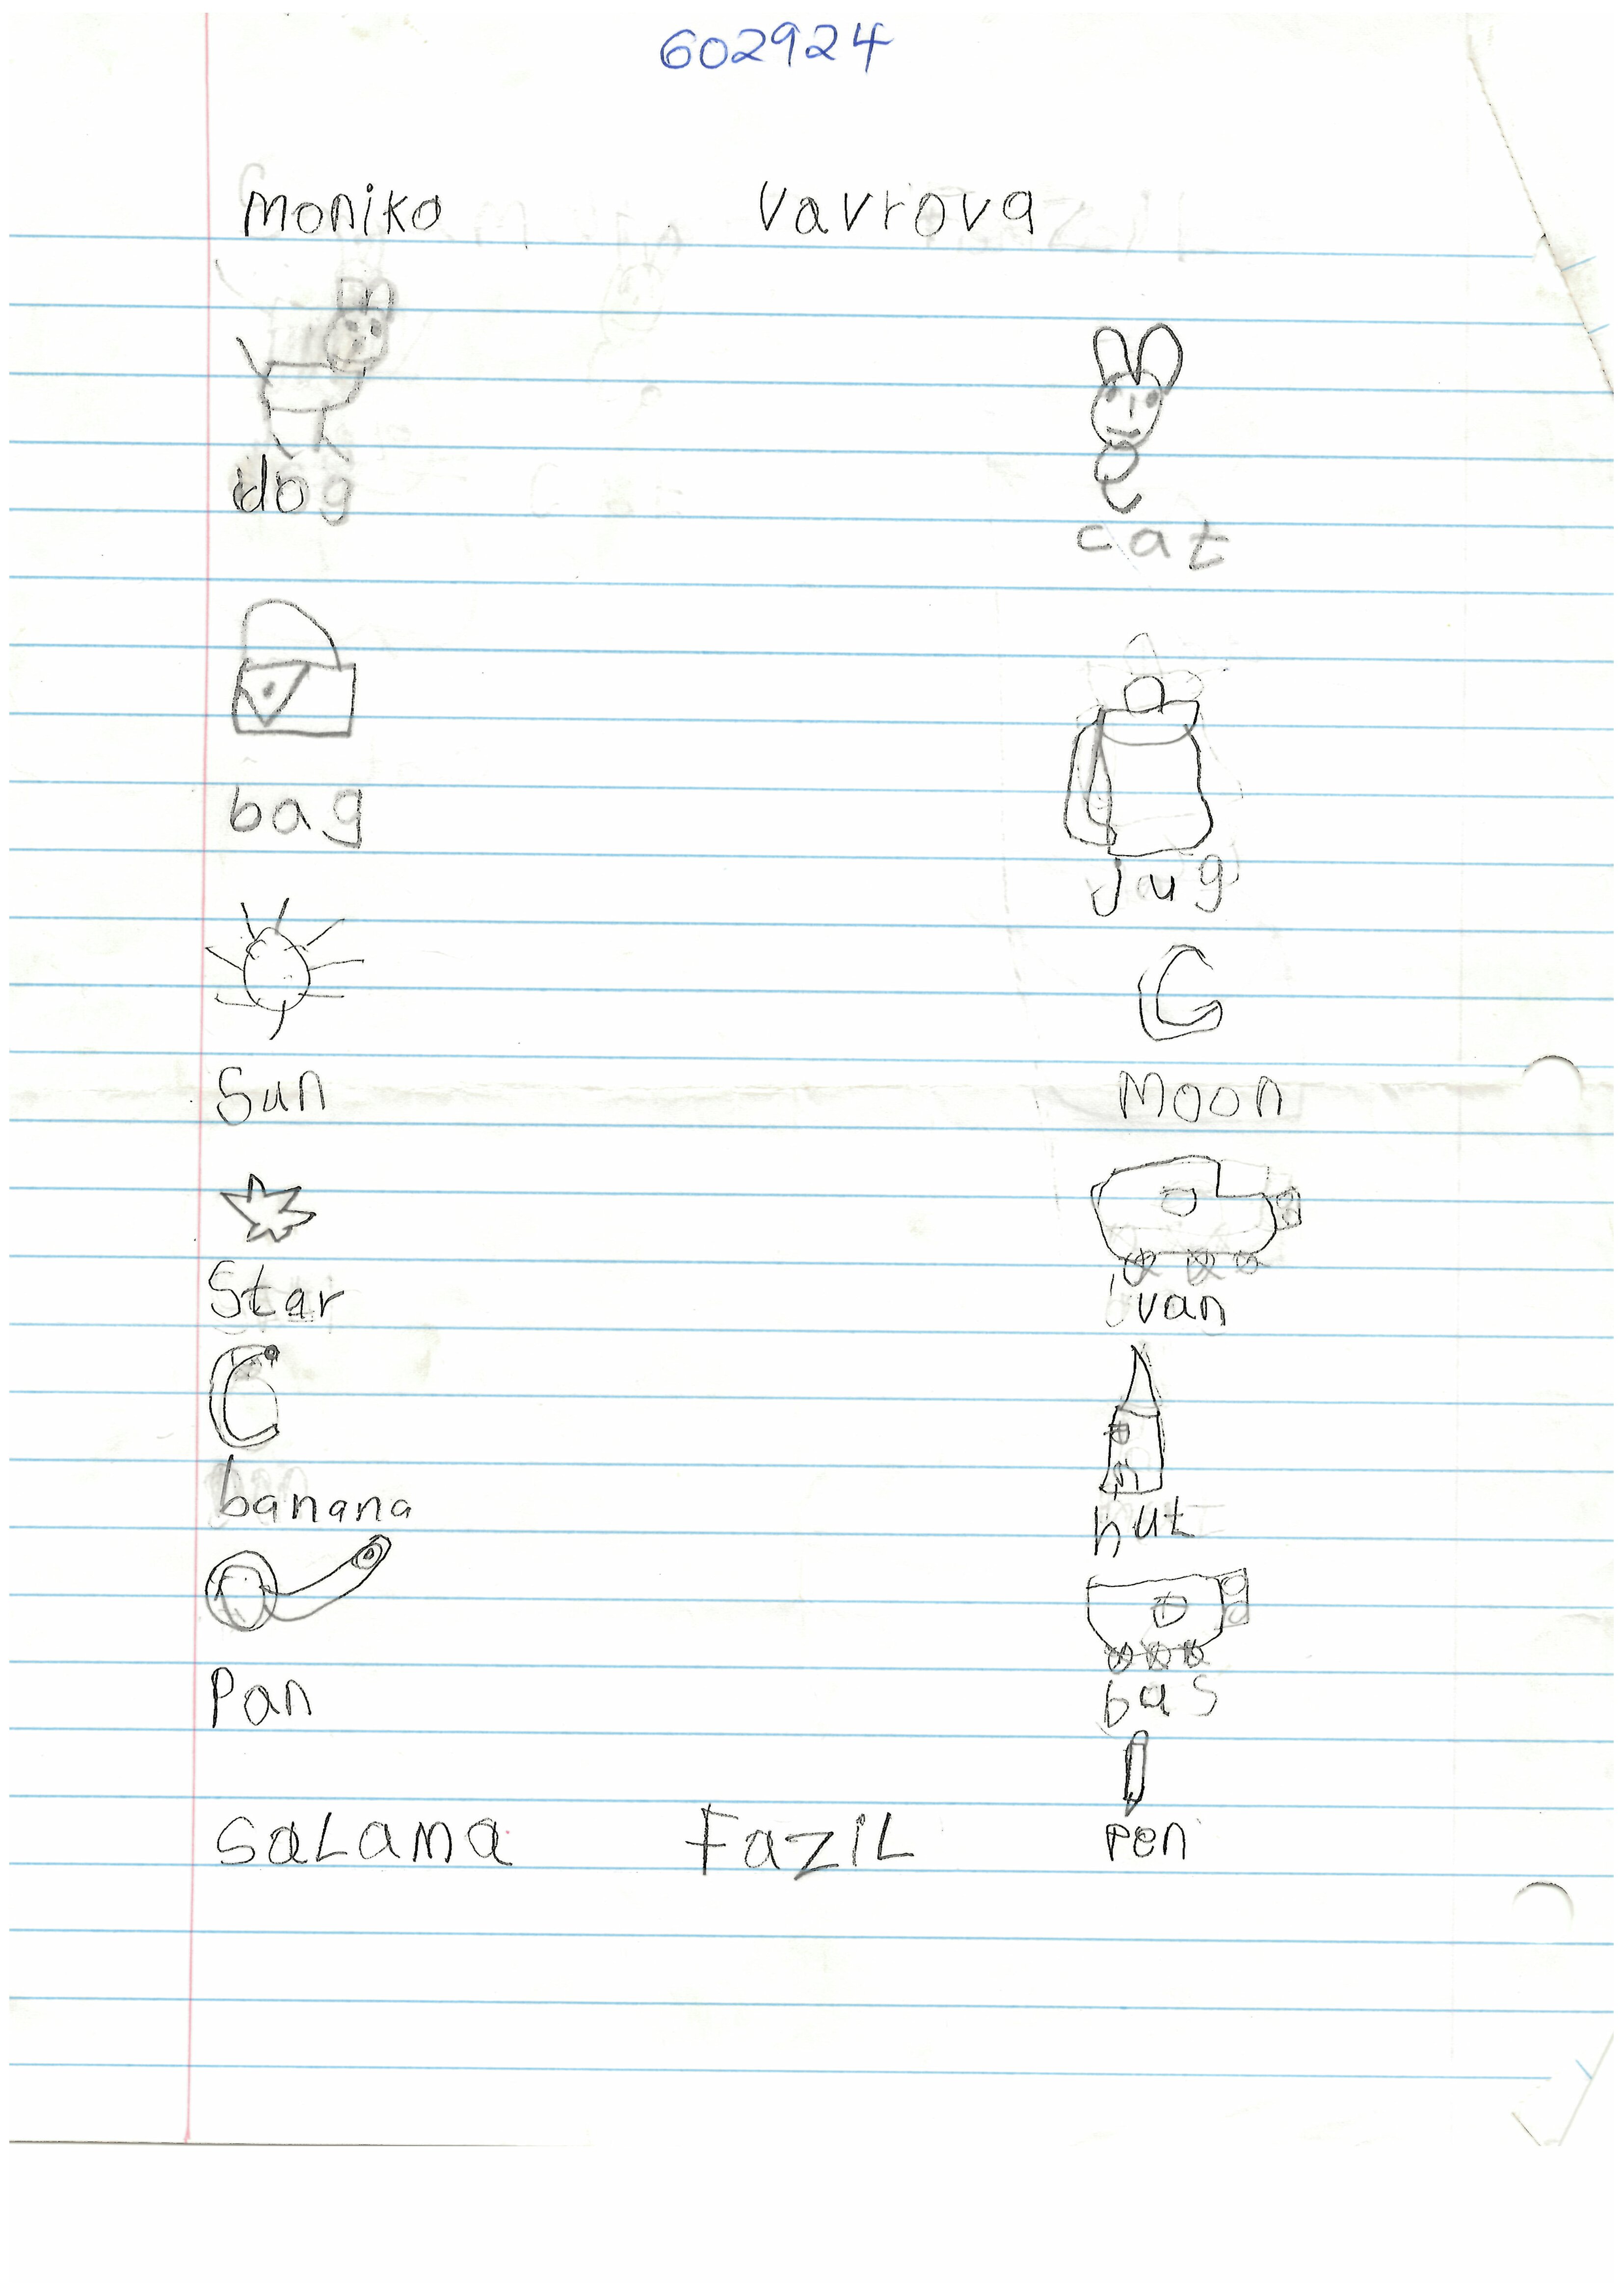 602924
Moniko Vavrova
dog
cat
bag
jug
Sun
Moon
Star
van
banana
hut
Pan
bus
pen
SaLama FaziL